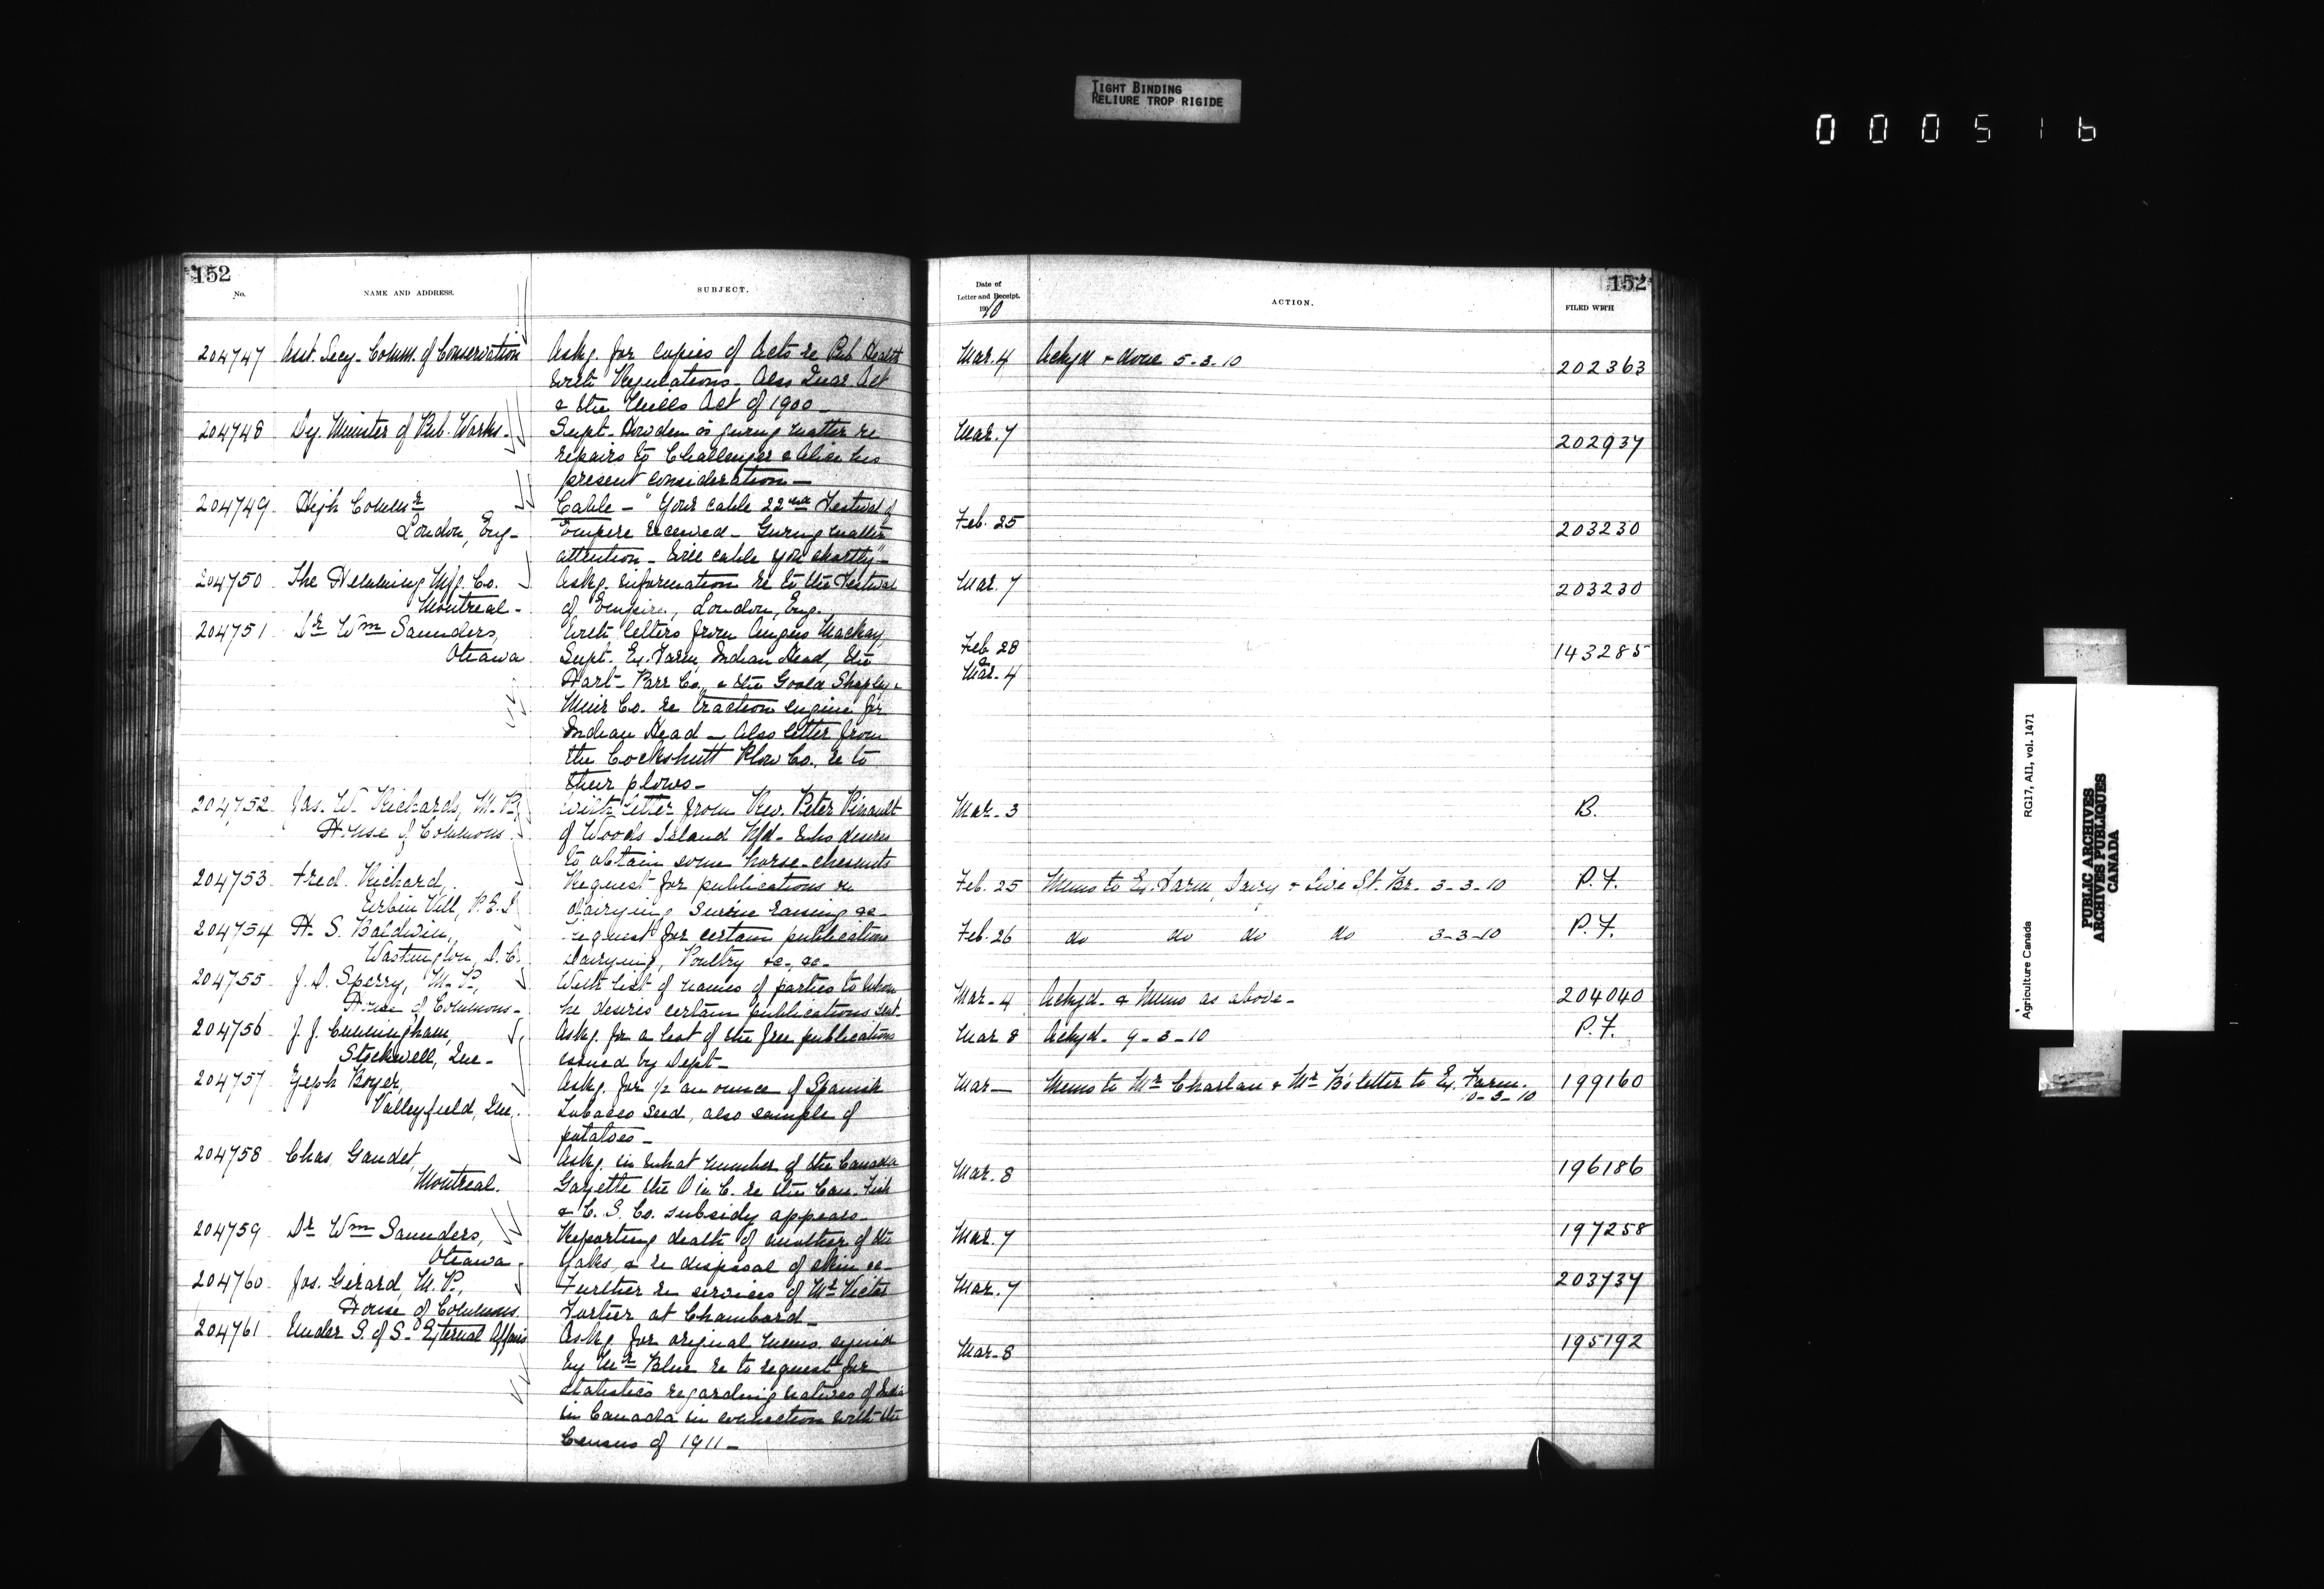 TIGHT BINDING
RELIURE TROP RIGIDE
000516
152
No.
NAME AND ADDRESS.
SUBJECT.
204747 Asst. Secy. Comm. of Conservation
Askg. for copies of Acts re Pub Health
with Regulations. Also Quar Act
& the Act of 1900 _
204748 Dy. Minister of Pub. Works.
Supt. Howden is giving matter re
repairs to Challenger & Alice his
present consideration _
204749 High Commr
London, Eng_
Cable _ "Your cable 22nd Festival of
Empire received _ Giving matter
attention _ Will cable you shortly" _
204750 The Mfg. Co.
Montreal _
Askg. information re to the Festival
of Empire, London, Eng.
204751 Dr Wm Saunders,
Ottawa
With letters from Angus Mackay,
Supt. Ex. Farm, Indian Head, the
Hart-Parr Co., & the Goold Shapley &
Muir Co. re traction engine for
Indian Head _ Also letter from
the Cockshutt Plow Co. re to
their plows _
204752 Jas. W. Richards, M.P.,
House of Commons
With letter from Rev. Peter
of Woods Island Nfd. who desires
to obtain some horse-chesnuts
204753 Fred. Richard,
Vill, P.E.I
Request for publications re
dairying swine raising &c _
204754 H. S. Baldwin,
Washington, D.C.
request for certain publications
Dairying, Poultry &c., &c _
204755 J. D. Sperry, M.P.,
House of Commons _
With list of names of parties to whom
he desires certain publications sent.
204756 J. J. Cunningham,
Stockwell, Que _
Askg. for a list of the free publications
issued by Dept _
204757 Zeph Boyer,
Valleyfield, Que.
Askg. for ½ an ounce of Spanish
Tobacco seed, also sample of
potatoes _
204758 Chas. Gaudet,
Montreal.
Askg. in what number of the Canada
Gazette the O in C. re the Can. Fish
& C. S. Co. subsidy appears _
204759 Dr Wm Saunders,
Ottawa.
Reporting death of another of the
Yaks, & re disposal of skin &c _
204760 Jos. Girard, M.P.,
House of Commons.
Further re services of Mr Victor
Fortier at Chambord _
204761 Under S. of S. External Affairs
Askg. for original memo signed
by Mr Blue re to request for
statistics regarding natives of India
in Canada in connection with the
Census of 1911 _
152
Date of
Letter and Receipt.
1910
ACTION.
FILED WITH
Mar. 4 Ackgd & done 5-3-10 202363
Mar. 7 202937
Feb. 25 203230
Mar. 7 203230
Feb. 28
&
Mar. 4
143285
Mar. 3 B.
Feb. 25 Memo to Ex. Farm, Dairy & Live St. Br. 3-3-10 P.F.
Feb. 26 do do do do 3-3-10 P.F.
Mar. 4 Ackgd. & Memo as above _ 204040
Mar 8 Ackgd. 9-3-10 P.F.
Mar _ Memo to Mr Charlan & Mr B's letter to Ex. Farm. 199160
10-3-10
Mar. 8 196186
Mar. 7 197258
Mar. 7 203737
Mar. 8 195192
Agriculture Canada
RG17, A11, vol. 1471
PUBLIC ARCHIVES
ARCHIVES PUBLIQUES
CANADA